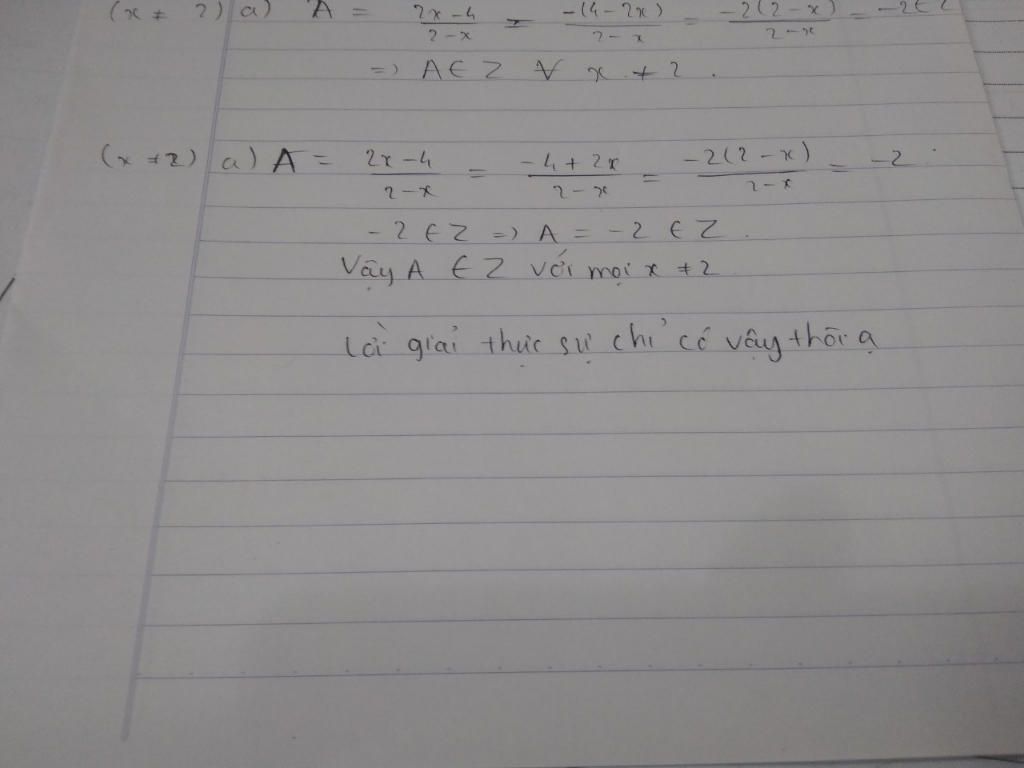 (x ≠ 2) a) A = 2x-4/2-x = -(4-2x)/2-x = -2(2-x)/2-x = -2 ∈ Z
=> A ∈ Z ∀ x ≠ 2.
(x ≠ 2) a) A = 2x-4/2-x = -4+2x/2-x = -2(2-x)/2-x = -2.
-2 ∈ Z => A = -2 ∈ Z.
Vậy A ∈ Z với mọi x ≠ 2
Lời giải thực sự chỉ có vậy thôi ạ